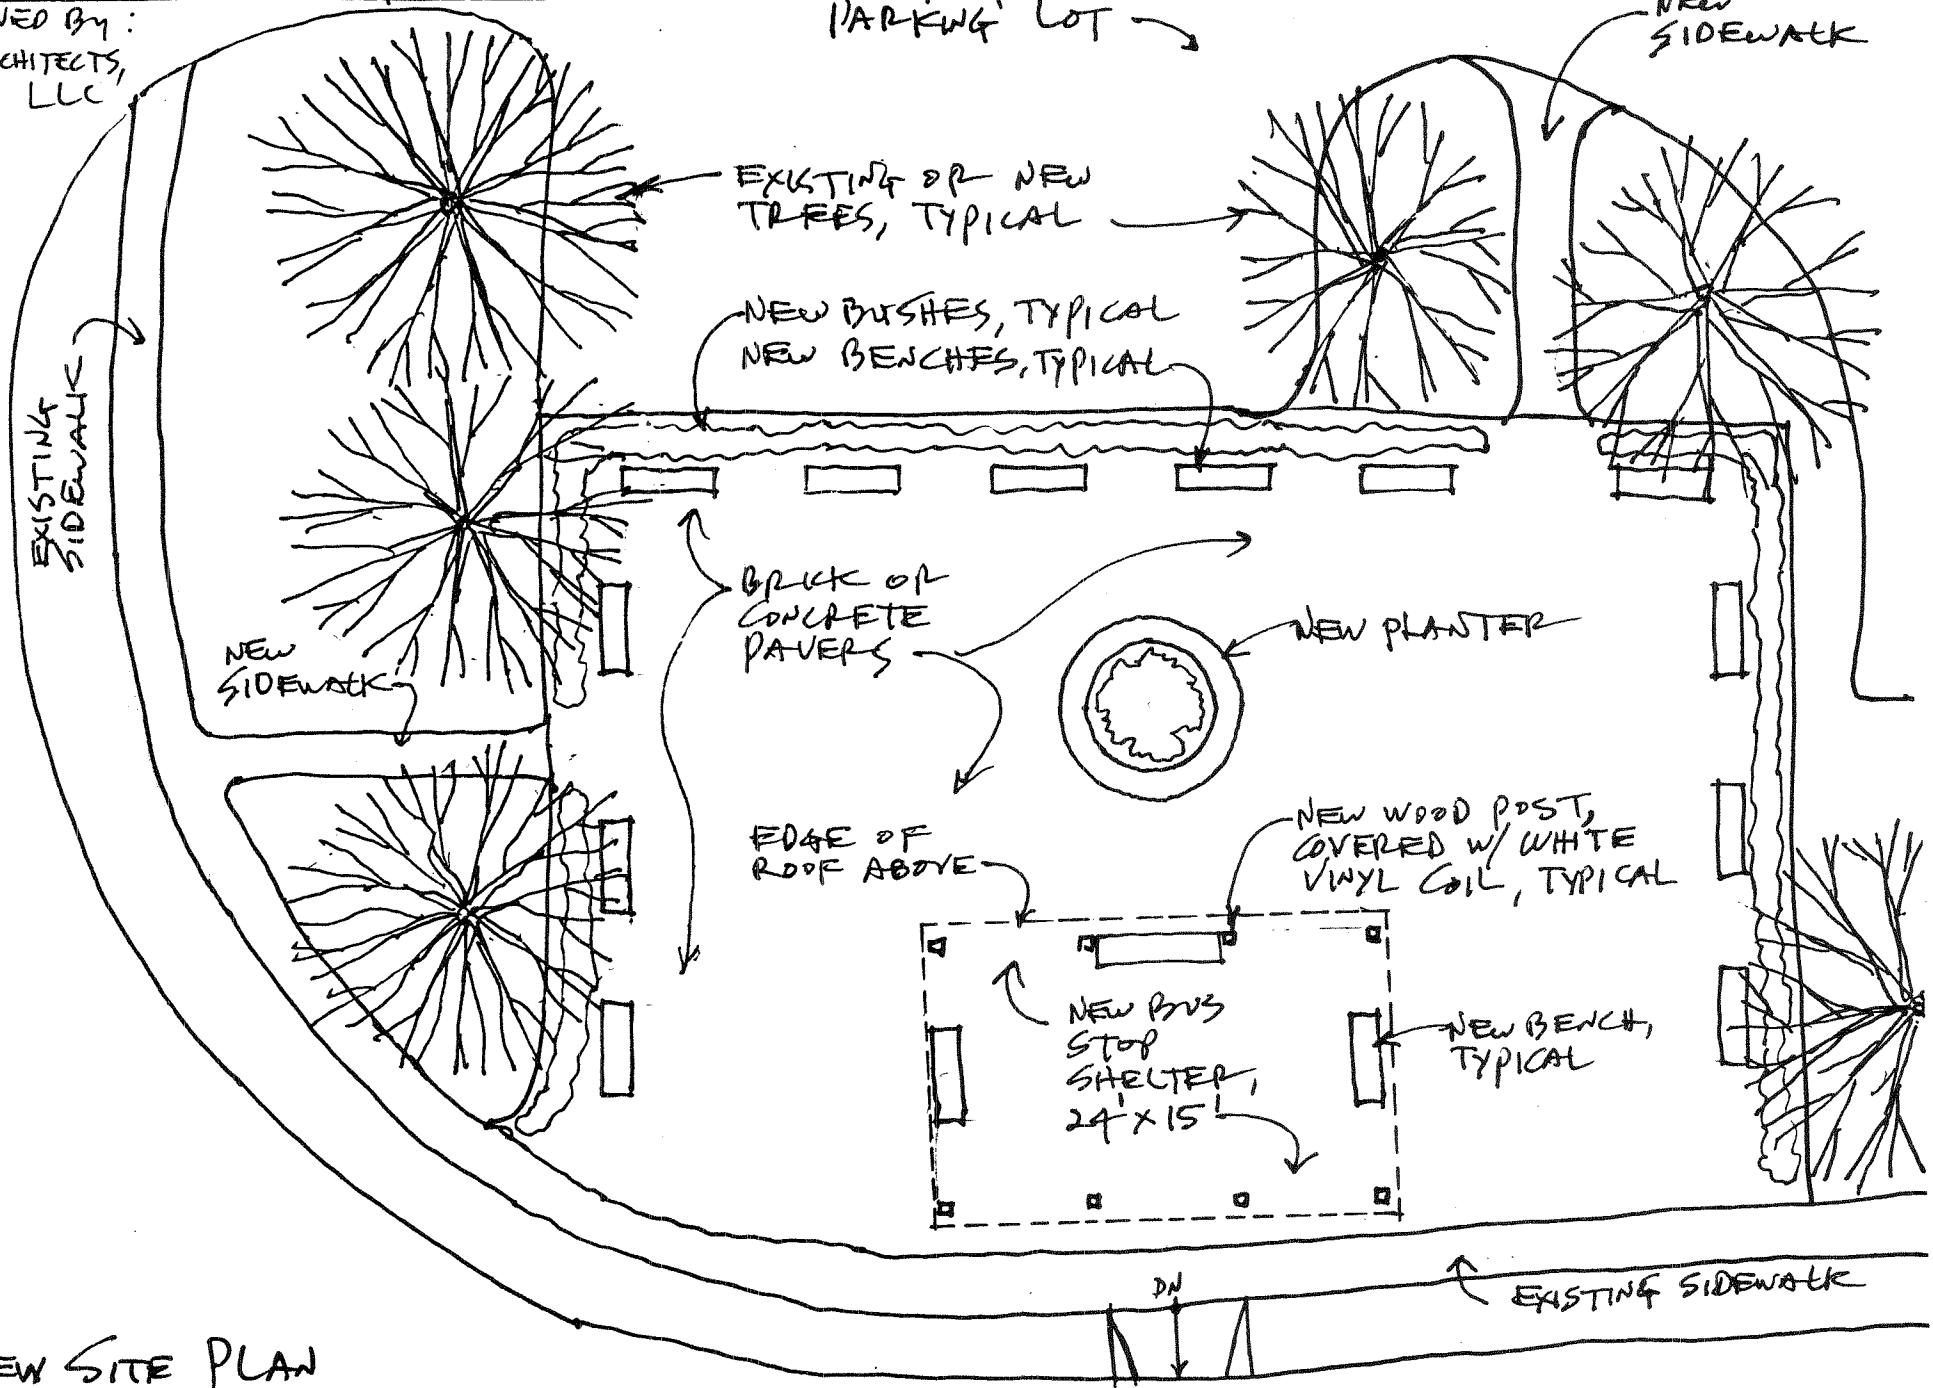 NED By:
CHITECTS,
LLC
PARKING LOT
NEW
SIDEWALK
EXISTING OR NEW
TREES, TYPICAL
NEW BUSHES, TYPICAL
NEW BENCHES, TYPICAL
EXISTING
SIDEWALK
BRICK OR
CONCRETE
PAVERS
NEW PLANTER
NEW
SIDEWALK
EDGE OF
ROOF ABOVE
NEW WOOD POST,
COVERED W/ WHITE
VINYL COIL, TYPICAL
NEW BUS
STOP
SHELTER,
24' x 15'
NEW BENCH,
TYPICAL
DN
EXISTING SIDEWALK
EW SITE PLAN